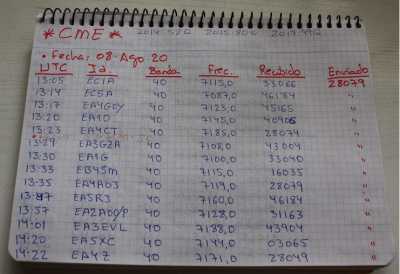 *CME*
• Fecha: 08-Ago 20
UTC Id. Banda Frec. Recibido Enviado
13:05 EC1A 40 7115,0 33066 28079
13:14 EC5A 40 7087,0 46184 "
13:17 EA4GOY 40 7123,0 45165 "
13:20 40 7145,0 40906 "
13:23 EA4CT 40 7185,0 28074 "
13:29 EA3GZA 40 7108,0 43004 "
13:30 EA1G 40 7100,0 33040 "
13:33 40 7115,0 16035 "
13:35 EA4AO3 40 7119,0 28079 "
13:47 EA5R3 40 7160,0 46184 "
13:57 40 7128,0 31163 "
14:01 EA3EVL 40 7188,0 43904 "
14:20 EA5XC 40 7144,0 03065 "
14:22 EA4Z 40 7171,0 28049 "